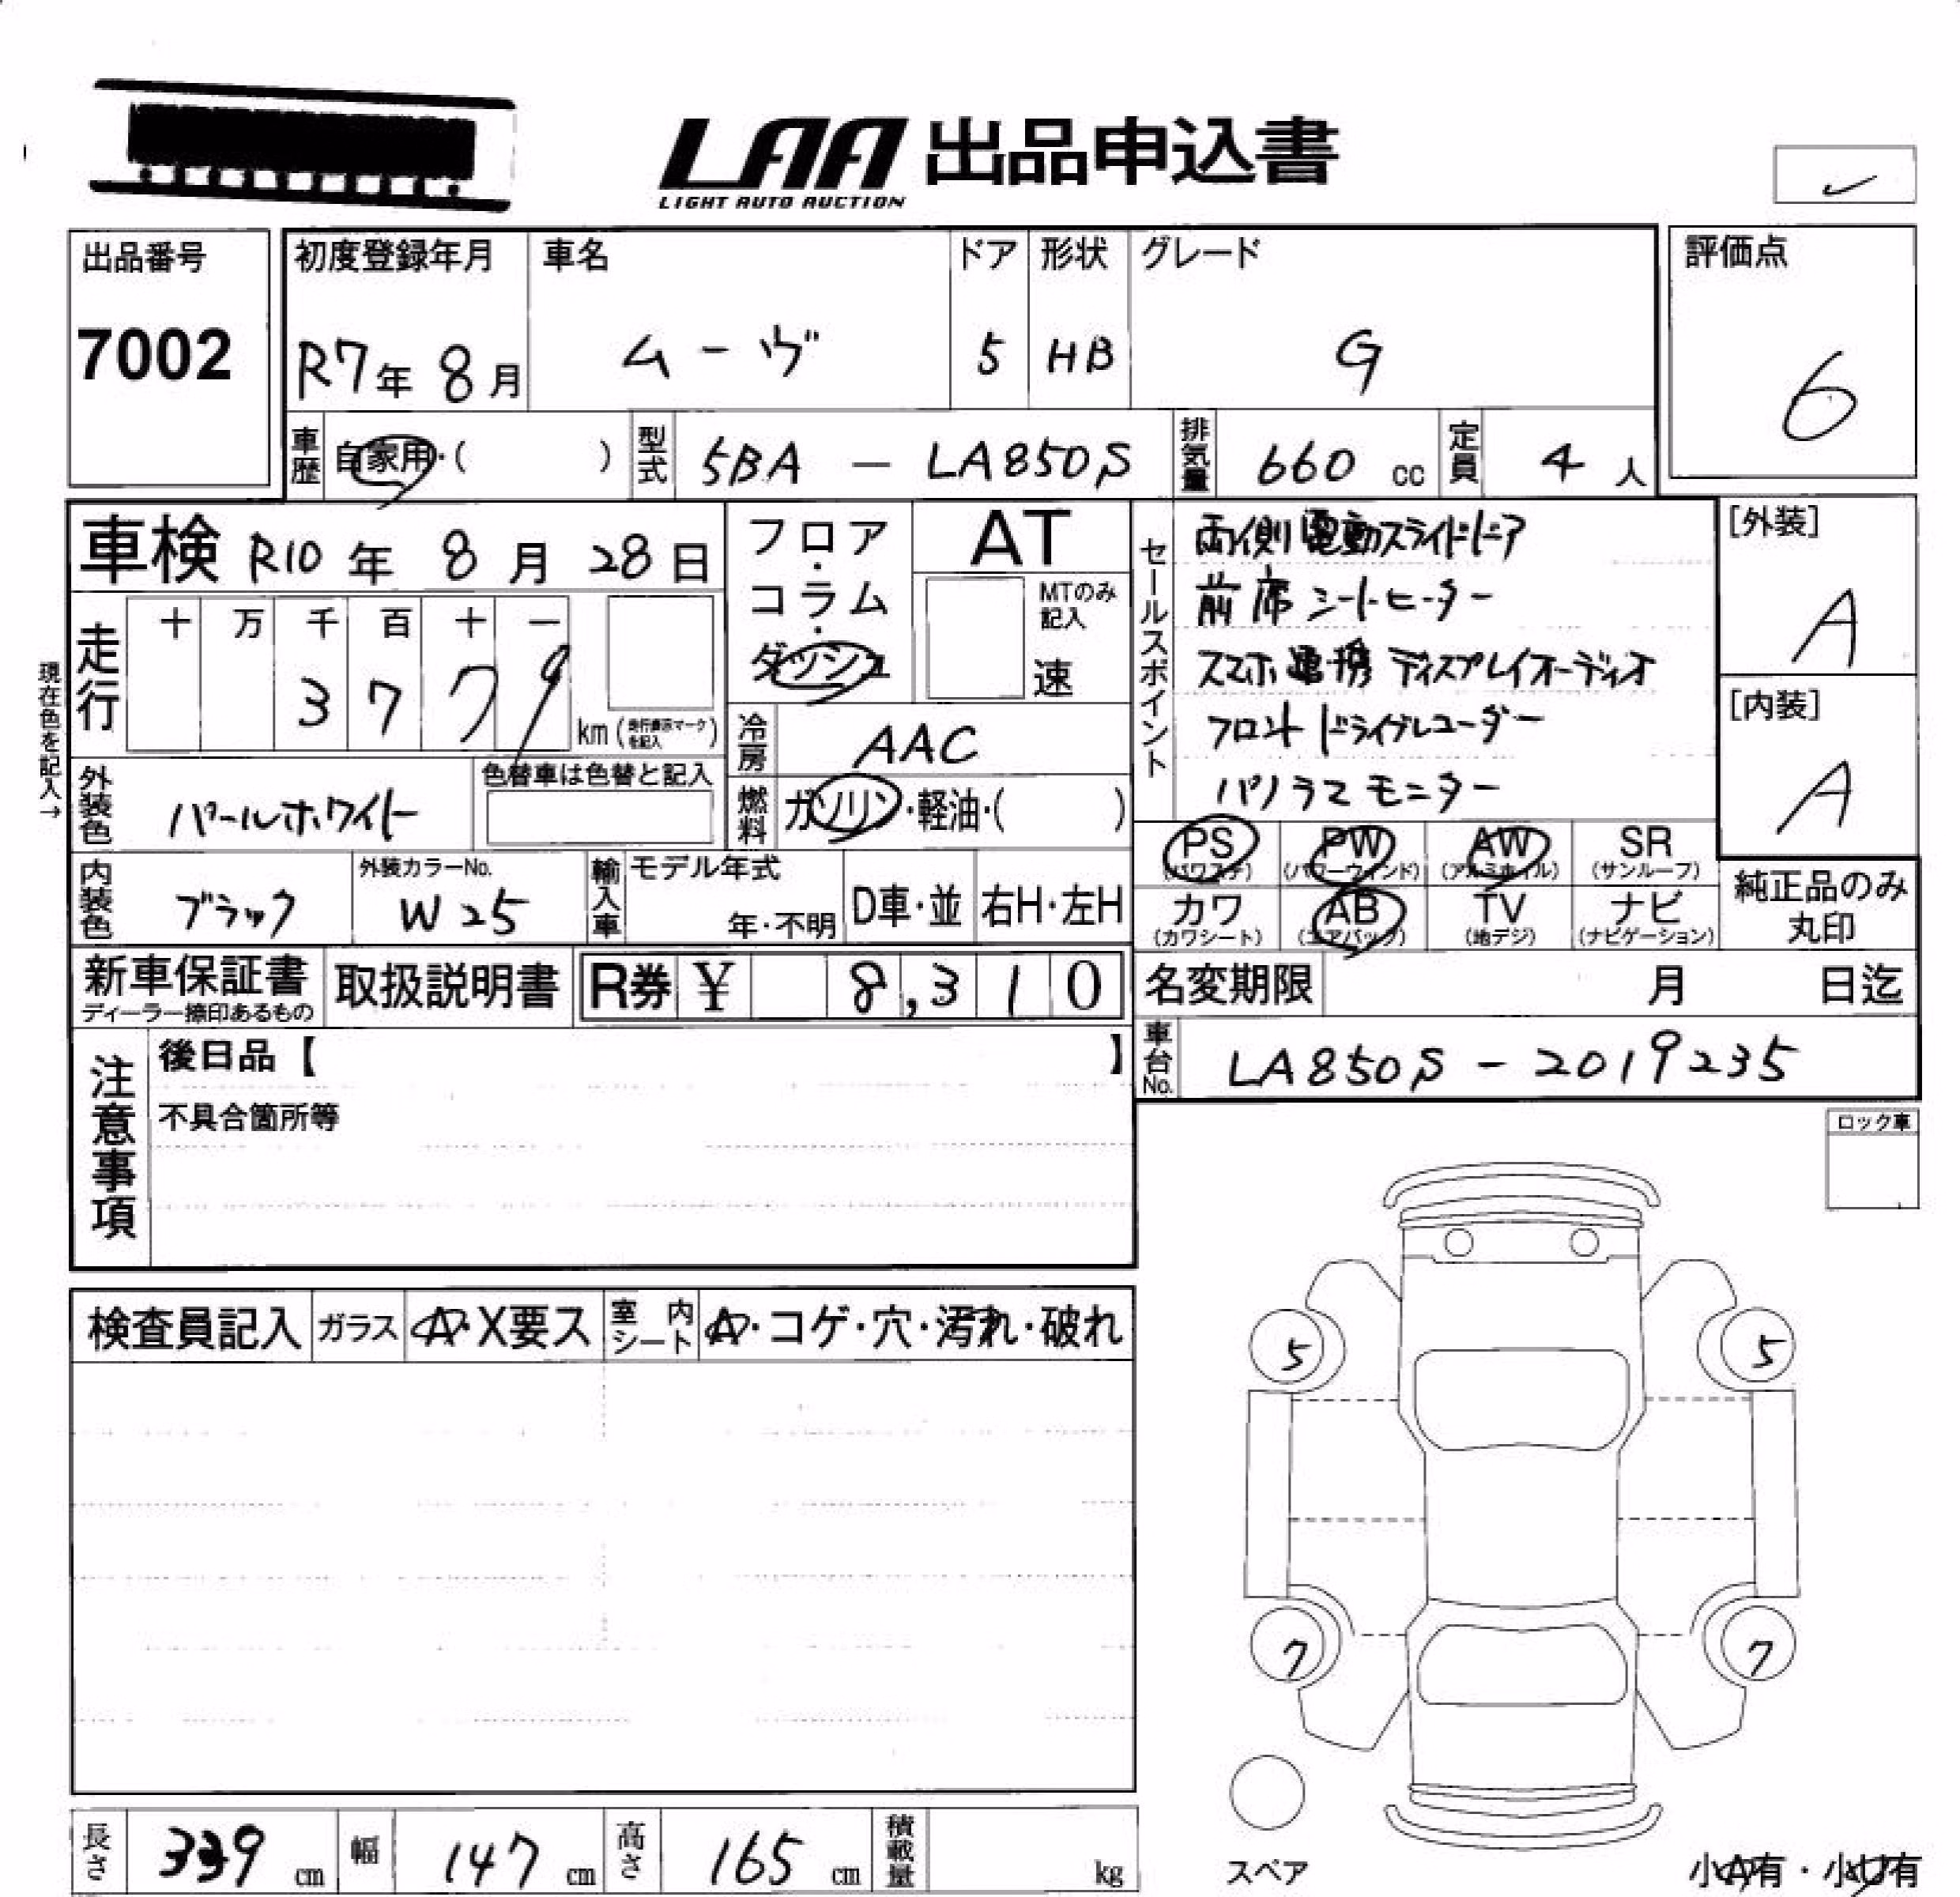 LAA 出品申込書
LIGHT AUTO AUCTION
出品番号
7002
初度登録年月
R7年 8月
車名
ムーヴ
ドア
5
形状
HB
グレード
G
評価点
6
車歴 自家用・( )
型式 5BA - LA850S
排気量 660 cc
定員 4 人
車検 R10 年 8 月 28 日
走行 十 万 千 百 十 一
3 7 7 9 km
現在色を記入→
外装色 パールホワイト
色替車は色替と記入
内装色 ブラック
外装カラーNo.
W25
フロア・コラム・ダッシュ
AT
MTのみ記入
速
冷房 AAC
燃料 ガソリン・軽油・( )
輸入車 モデル年式
年・不明
D車・並
右H・左H
セールスポイント
両側電動スライドドア
前席シートヒーター
スマホ連携ディスプレイオーディオ
フロントドライブレコーダー
パノラマモニター
[外装]
A
[内装]
A
PS (パワステ)
PW (パワーウィンド)
AW (アルミホイル)
SR (サンルーフ)
カワ (カワシート)
AB (エアバック)
TV (地デジ)
ナビ (ナビゲーション)
純正品のみ丸印
新車保証書
ディーラー捺印あるもの
取扱説明書
R券 ¥ 8,310
名変期限 月 日迄
車台No. LA850S - 2019235
注意事項
後日品【 】
不具合箇所等
ロック車
検査員記入
ガラス A・X要ス
室内シート A・コゲ・穴・汚れ・破れ
5
5
7
7
スペア
小A有・小U有
長さ 339 cm
幅 147 cm
高さ 165 cm
積載量 kg